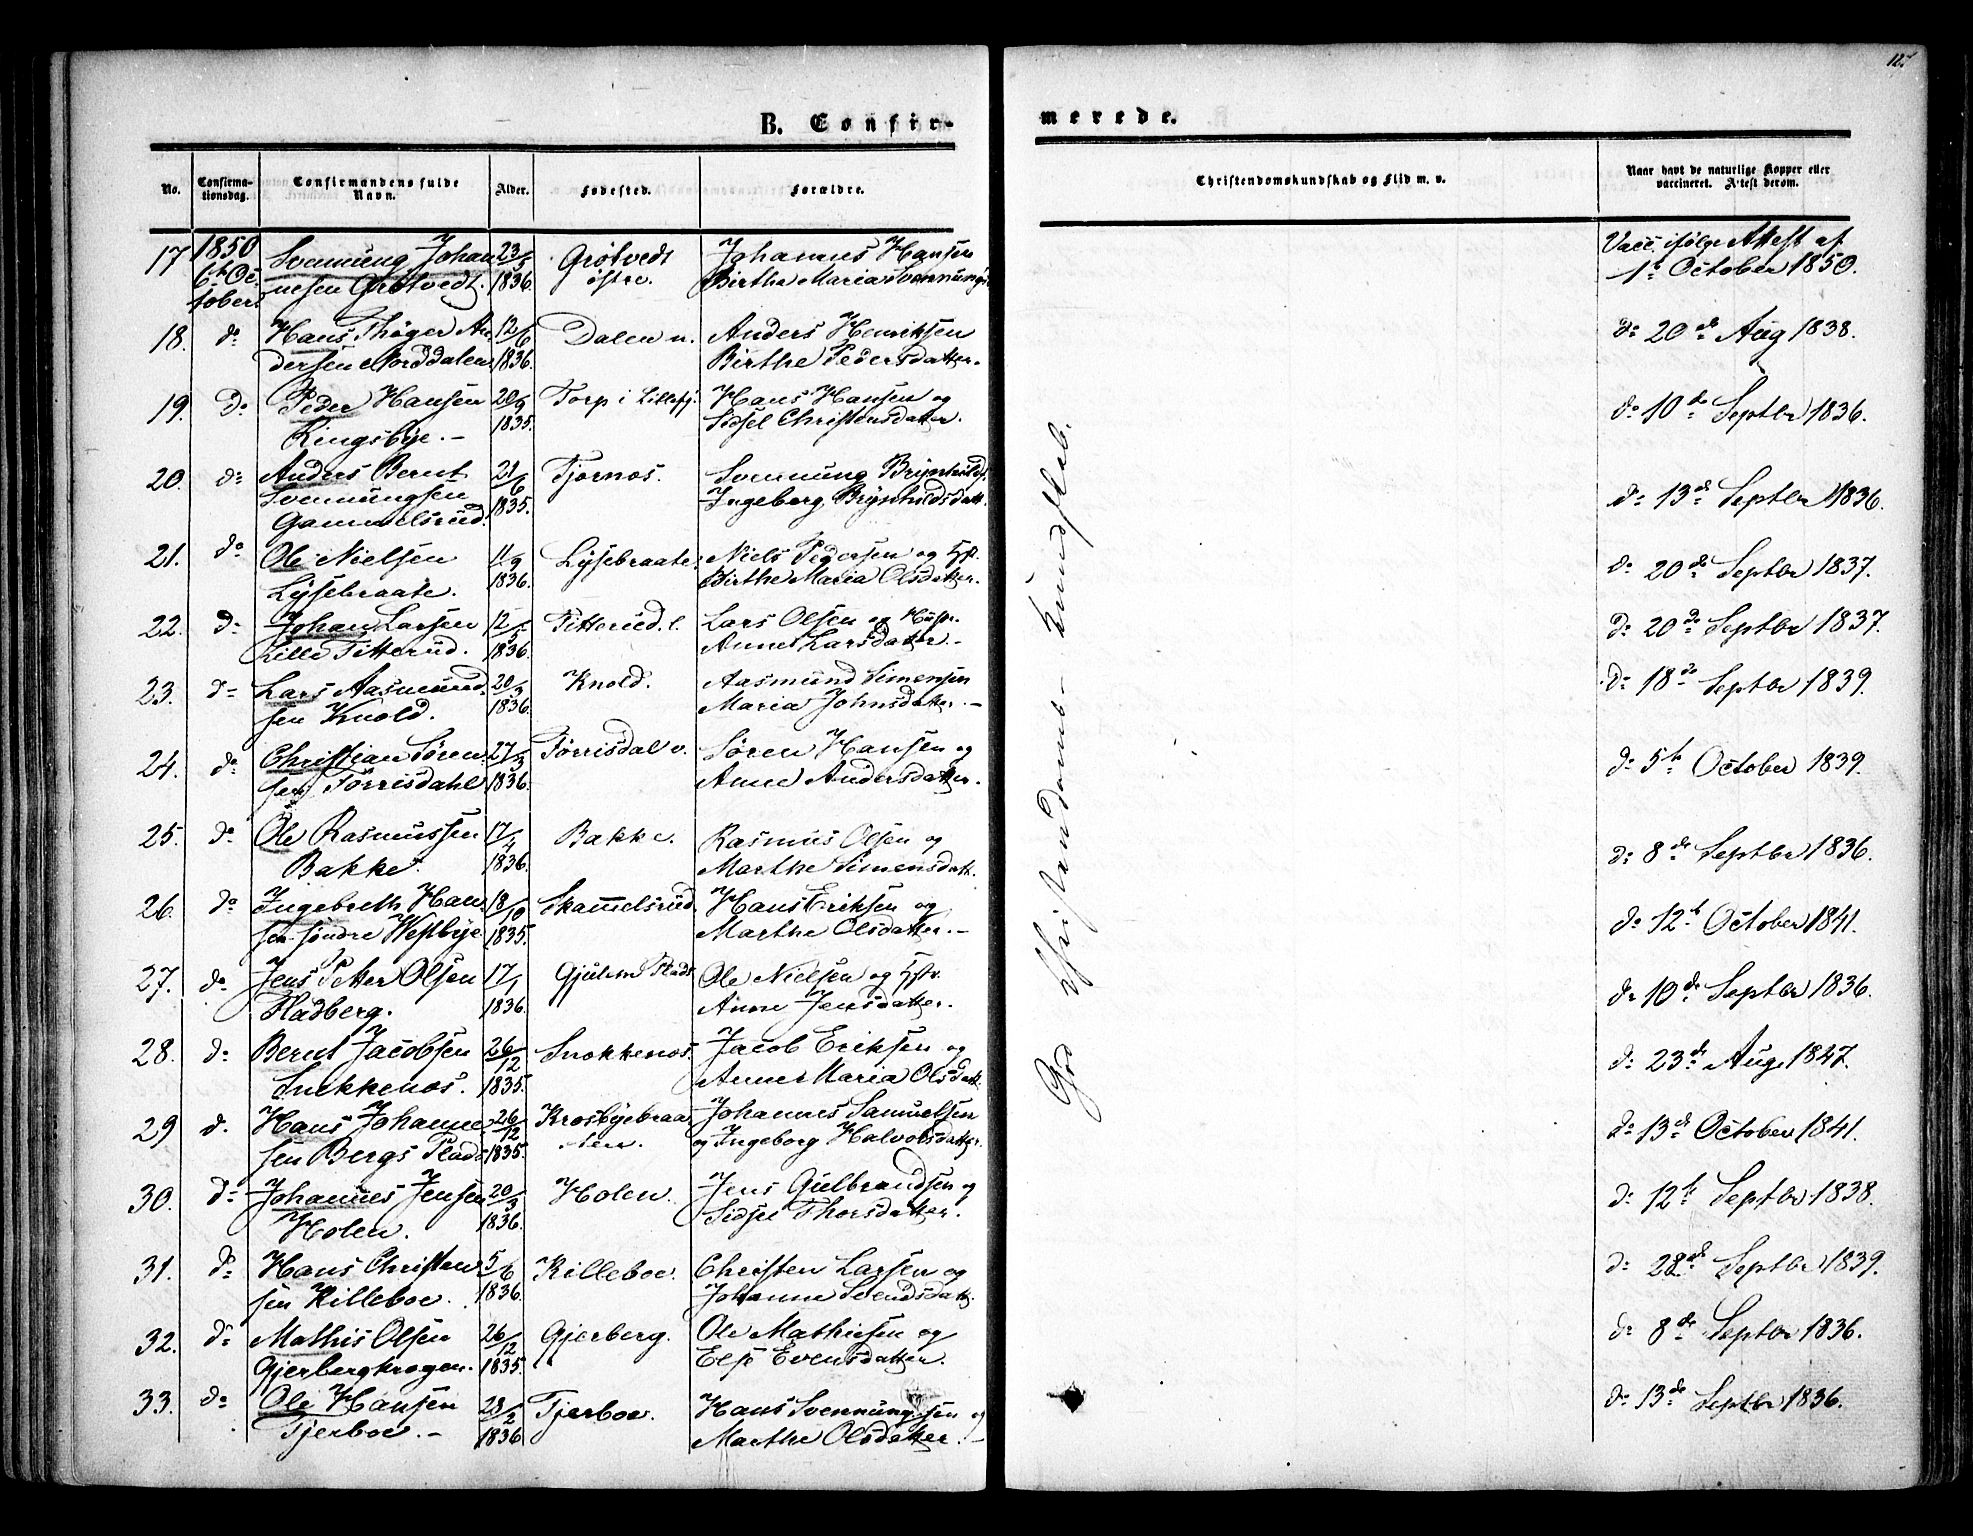 127
B. Confir-
merede.
No.
Confirma-
tionsdag.
Confirmandens fulde
Navn.
Alder.
Fødested.
Forældre.
Christendomskundskab og Flid m. v.
Naar havt de naturlige Kopper eller
vaccineret. Attest derom.
17 1850 Svennung Johan 23/5 Grøtvedt Johannes Hansen Vacc ifølge Attest af
6t Oc nesen Grøtvedt. 1836. østre. Birthe Maria Svennungs 1t October 1850.
tober.
18. do Hans Thøger An 12/6 Dalen n. Anders Henriksen do 20de Aug 1838.
dersen Norddalen 1836. Birthe Pedersdatter.
19. do Peder Hansen 20/9 Torp i Lillefj. Hans Hansen og do 10de Septbr 1836.
Ringsbye. 1835. Sidsel Christensdatter.
20. do Anders Bernt 21/6 Tjørnos. Svennung Brynhilds do 13de Septbr 1836.
Svennungsen 1835. Ingeborg Brynhildsdatt.
Gammelsrud.
21. do Ole Nielsen 11/9 Lysebraate. Niels Pedersen og Hst. do 20de Septbr 1837.
Lysebraate. 1836. Birthe Maria Olsdatter.
22. do Johan Larsen 12/5 Titterud l. Lars Olsen og Hustr. do 20de Septbr 1837.
Lille Titterud. 1836. Anne Larsdatter.
23. do Lars Aasmund 20/3 Knold. Aasmund Simensen do 18de Septbr 1839.
sen Knold. 1836. Maria Johnsdatter.
24. do Christian Søren 27/3 Tørrisdal v. Søren Hansen og do 5th October 1839.
sen Tørrisdahl 1836. Anne Andersdatter.
25. do Ole Rasmussen 17/4 Bakke. Rasmus Olsen og do 8de Septbr 1836.
Bakke. 1836. Marthe Simensdatt.
26. do Ingebreth Han 18/10 Skammelsrud. Hans Eriksen og do 12th October 1841.
sen søndre Westbye 1835. Marthe Olsdatter.
27. do Jens Petter Olsen 17/1 Gjulem Plads Ole Nielsen og Hstr. do 10de Septbr 1836.
Fladberg. 1836. Anne Jensdatter.
28. do Bernt Jacobsen 26/12 Snekkenos. Jacob Eriksen og do 23de Aug. 1847.
Snekkenos. 1835. Anne Maria Olsdatt.
29 do. Hans Johanne 26/12 Krosbyebraa Johannes Samuelsen do 13de October 1841.
sen Bergs Plads 1835. ten. og Ingeborg Halvorsdatter.
30. do Johannes Jensen 20/3 Holen. Jens Gulbrandsen og do 12th Septbr 1838.
Holen. 1836. Sidsel Thorsdatter.
31. do Hans Christen 5/6 Killeboe. Christen Larsen og do 28de Septbr 1839.
sen Killeboe. 1836. Johanne Svendsdatt.
32. do Mathis Olsen 26/12 Gjerberg. Ole Mathiesen og do 8de Septbr 1836.
Gjerbergkrogen. 1835. Else Evensdatter.
33. do Ole Hansen 28/2 Tjerboe. Hans Svennungsen og do 13de Septbr 1836.
Tjerboe. 1836 Marthe Olsdatter.
God Christendoms-Kundskab.